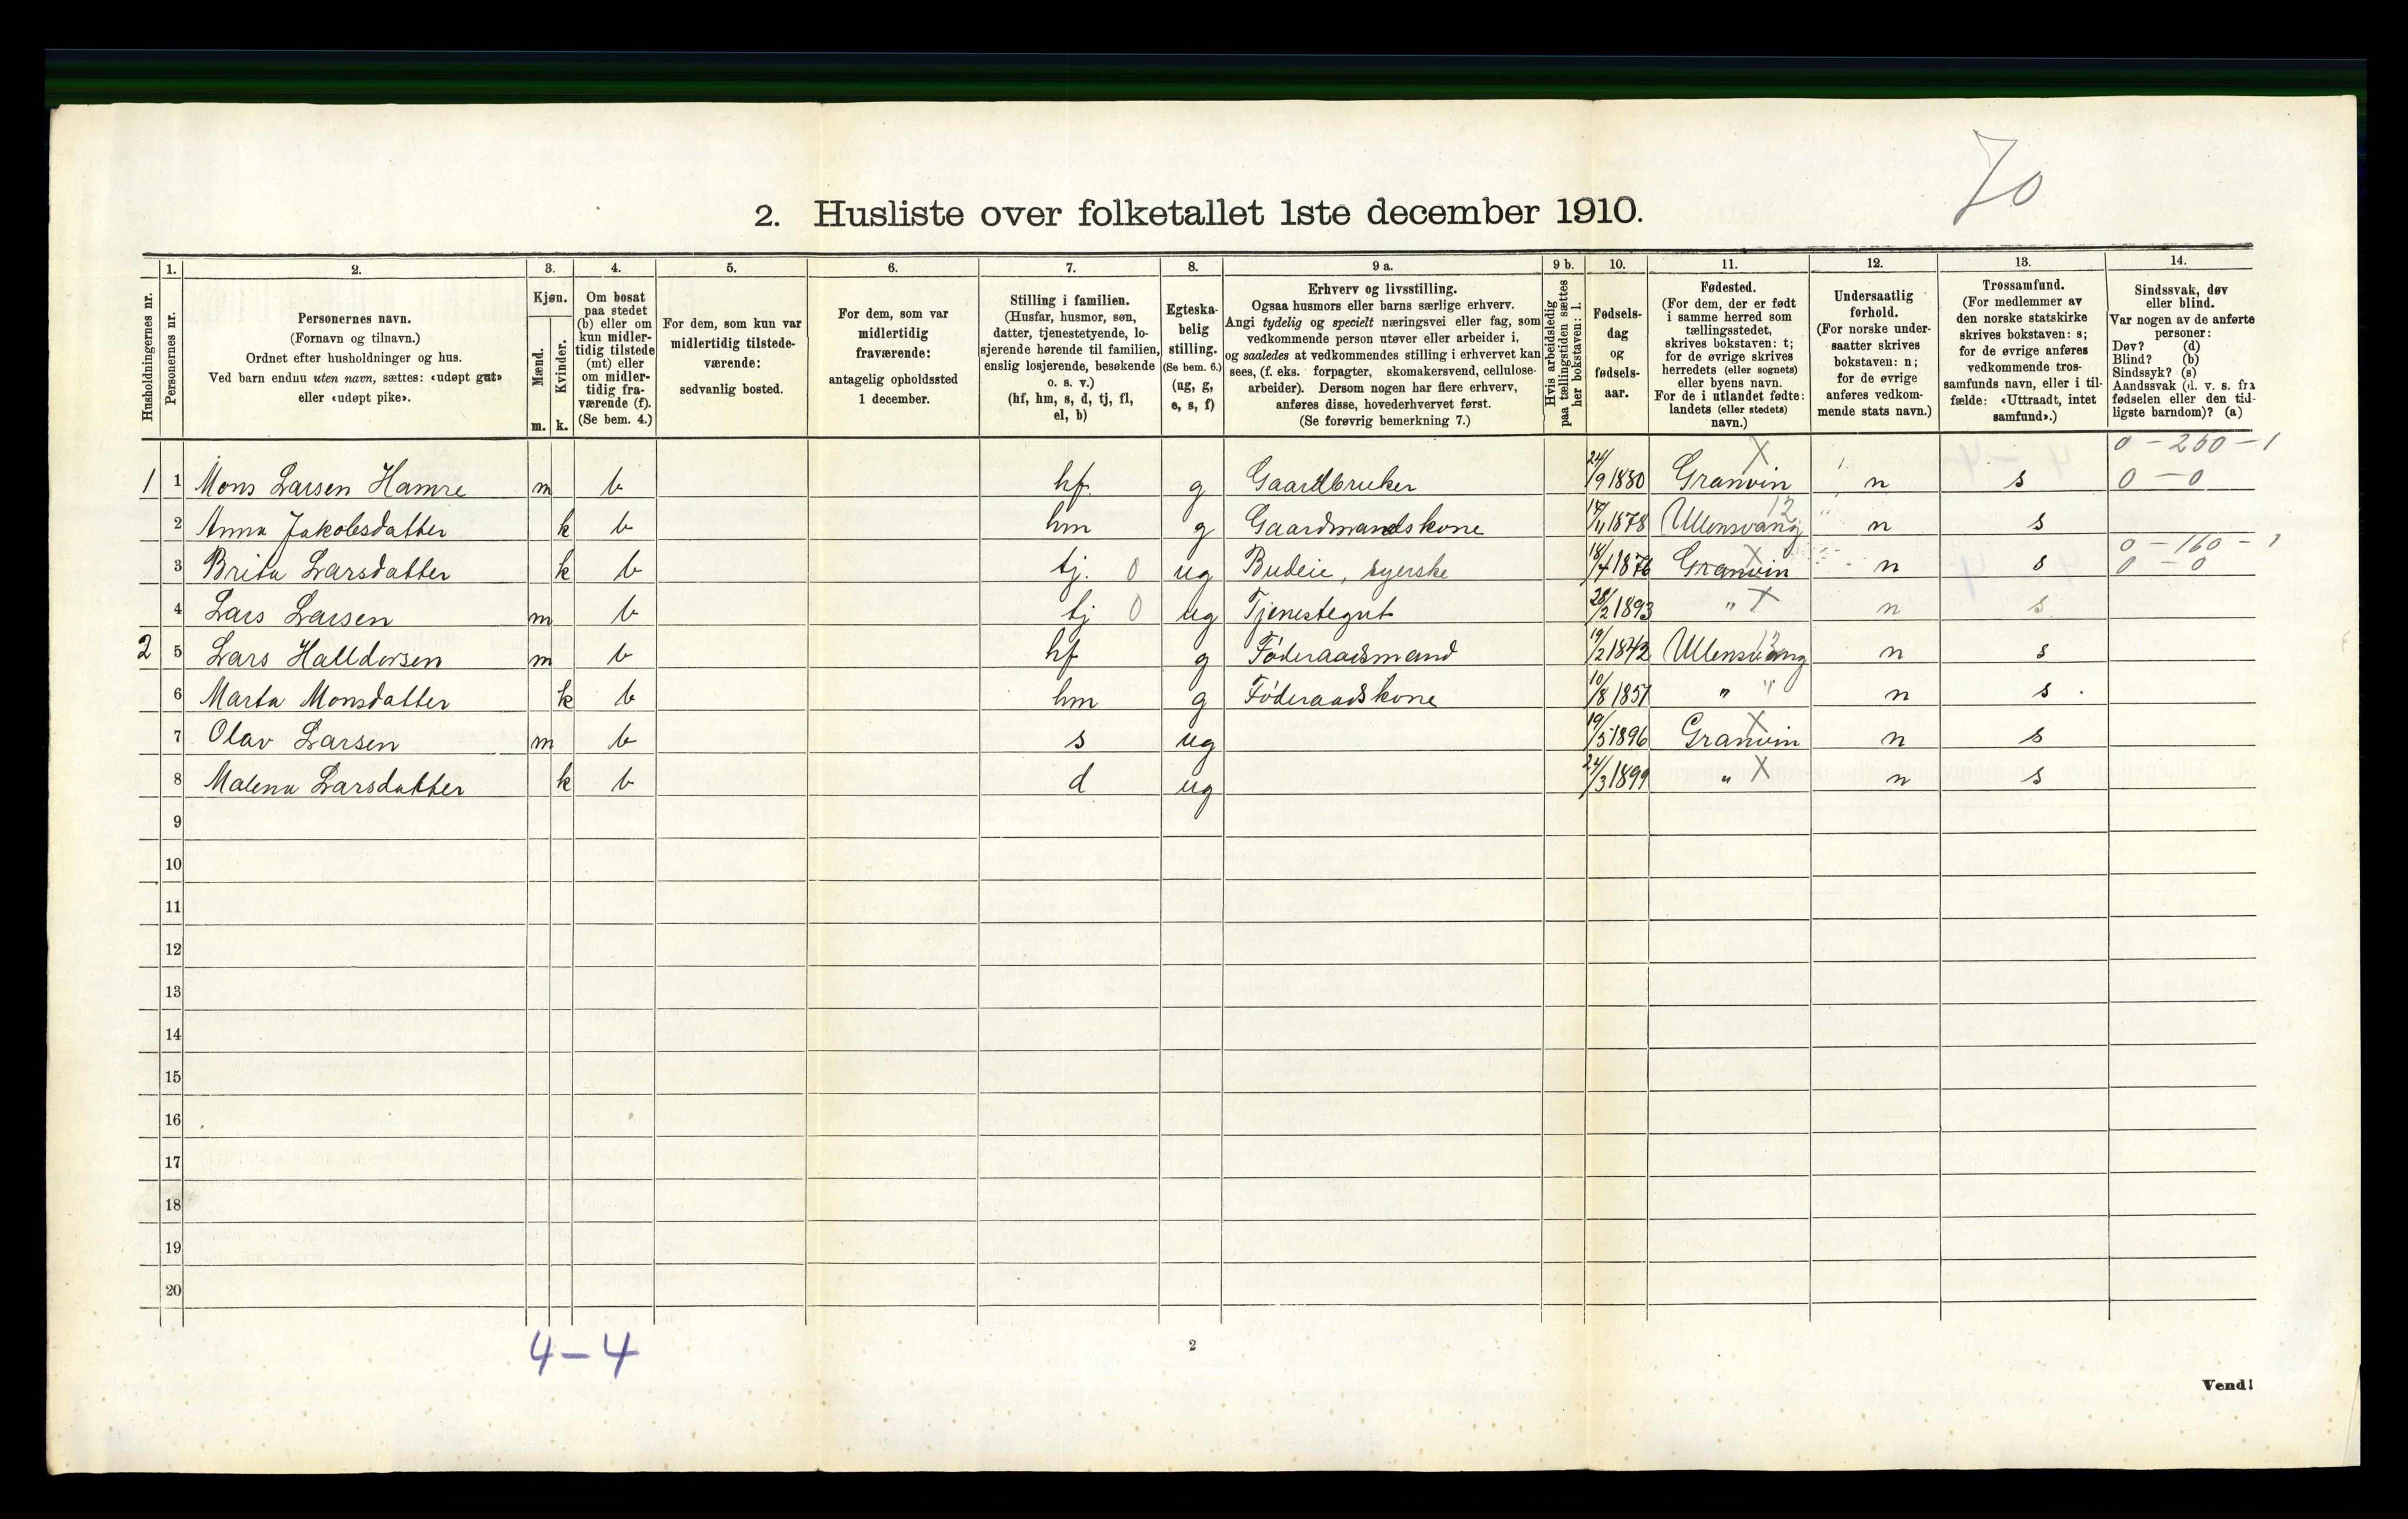 70
2. Husliste over folketallet 1ste december 1910.
Husholdningernes nr.
1.
Personernes nr.
2.
Personernes navn.
(Fornavn og tilnavn.)
Ordnet efter husholdninger og hus.
Ved barn endnu uten navn, sættes: «udøpt gut»
eller «udøpt pike».
3.
Kjøn.
Mænd.
Kvinder.
m. k.
4.
Om bosat
paa stedet
(b) eller om
kun midler-
tidig tilstede
(mt) eller
om midler-
tidig fra-
værende (f).
(Se bem. 4.)
5.
For dem, som kun var
midlertidig tilstede-
værende:
sedvanlig bosted.
6.
For dem, som var
midlertidig
fraværende:
antagelig opholdssted
1 december.
7.
Stilling i familien.
(Husfar, husmor, søn,
datter, tjenestetyende, lo-
sjerende hørende til familien,
enslig losjerende, besøkende
o. s. v.)
(hf, hm, s, d, tj, fl,
el, b)
8.
Egteska-
belig
stilling.
(Se bem. 6.)
(ug, g,
e, s, f)
9 a.
Erhverv og livsstilling.
Ogsaa husmors eller barns særlige erhverv.
Angi tydelig og specielt næringsvei eller fag, som
vedkommende person utøver eller arbeider i,
og saaledes at vedkommendes stilling i erhvervet kan
sees, (f. eks. forpagter, skomakersvend, cellulose-
arbeider). Dersom nogen har flere erhverv,
anføres disse, hovederhvervet først.
(Se forøvrig bemerkning 7.)
9 b.
Hvis arbeidsledig
paa tællingstiden sættes
her bokstaven: l.
10.
Fødsels-
dag
og
fødsels-
aar.
11.
Fødested.
(For dem, der er født
i samme herred som
tællingsstedet,
skrives bokstaven: t;
for de øvrige skrives
herredets (eller sognets)
eller byens navn.
For de i utlandet fødte:
landets (eller stedets)
navn.)
12.
Undersaatlig
forhold.
(For norske under-
saatter skrives
bokstaven: n;
for de øvrige
anføres vedkom-
mende stats navn.)
13.
Trossamfund.
(For medlemmer av
den norske statskirke
skrives bokstaven: s;
for de øvrige anføres
vedkommende tros-
samfunds navn, eller i til-
fælde: «Uttraadt, intet
samfund».)
14.
Sindssvak, døv
eller blind.
Var nogen av de anførte
personer:
Døv? (d)
Blind? (b)
Sindssyk? (s)
Aandssvak (d. v. s. fra
fødselen eller den tid-
ligste barndom)? (a)
X 0 - 260 - 1
1 1 Mons Larsen Hamre m b hf. g Gaardbruker 24/9 1880 Granvin n s 0 - 0
2 Anna Jakobsdatter k b hm g Gaardmandskone 17/11 1878 Ullensvang 12 n s
0 - 160 - 1
3 Brita Larsdatter k b tj. 0 ug Budeie, syerske 18/4 1876 Granvin X n s 0 - 0
4 Lars Larsen m b tj 0 ug Tjenestegut 28/2 1893 " X n s
2 5 Lars Halldorsen m b hf g Føderaadsmand 19/2 1842 Ullensvang 12 n s
6 Marta Monsdatter k b hm g Føderaadskone 10/8 1851 " " n s
7 Olav Larsen m b s ug 19/5 1896 Granvin X n s
8 Malena Larsdatter k b d ug 24/3 1899 " X n s
9
10
11
12
13
14
15
16
17
18
19
20
4-4
2
Vend!